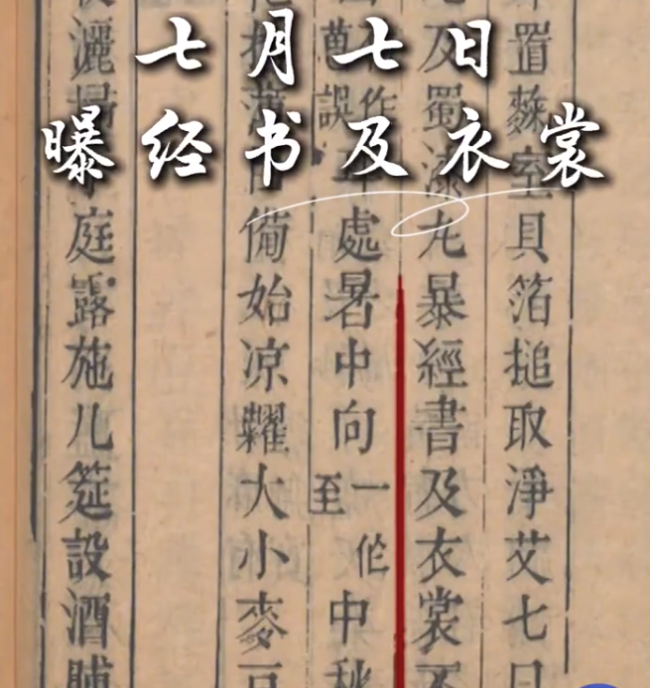 七月七日
曝经书及衣裳
置室具箔搥取淨艾七日
及蜀漆丸暴經書及衣裳不
作
誤
處暑中向一作
至
中秋
備始凉糶大小麥豆
灑掃
庭露施几筵設酒脯